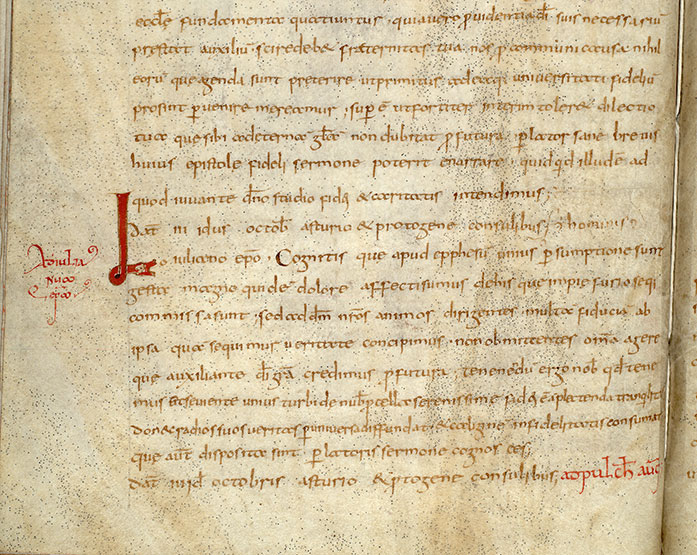 eccłe fundamenta quatiuntus · qui a vero puidentia dī suis necessariū
prestat auxiliū · scire debet fraternitas tua nos p communi causa nihil
eorū que agenda sunt preterire ut primitus ad eaq; universitati fideliū
prosunt pervenire mereamur · sup ē ut fortiter interim toleret dilectio
tua que sibi ad eternae głae non dubitat pfutura · plator sane brevis
huius epistole fideli sermone poterit enarrare · quidqd illud ē ad
quod iuvante dño studio fidei & caritatis intendimus ;
Dat iii idus octob asturio & protogene consulibus ;
Leo iuliano epo · Cognitis que apud epphesū unius psumptione sunt
Ad iulia
nuco
epō
gesta magno quidē dolore affectisumus de his que impie furiose qi
commissa sunt · sed ad dm̄ nr̄os animos dirigentes multa fiduciā ab
ipsa qua sequimur veritate concipimus · non obmittentes om̄a agere
que auxiliante dī gra credimus pfutura ·
mus &seviente unius turbide nubi pcella serenissime fidei
don& radios suos veritas p universa diffundat · & caligine infidelitatis consumat
que aut̄ disposita sunt platoris sermone cognosces ;
Dat iii id octobris asturio & ptogene consulibus ; ad pulch aug